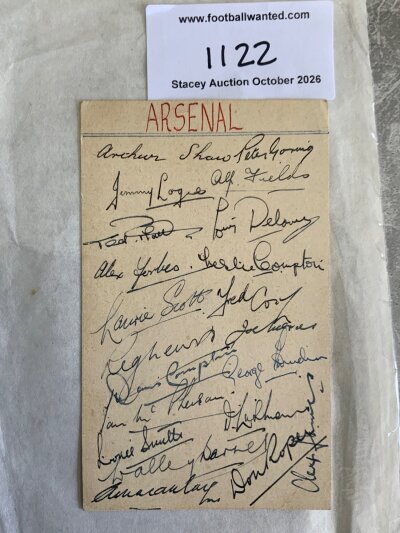 www.footballwanted.com
1122
Stacey Auction October 2026
ARSENAL
Archer Shaw Peter Goring
Jimmy Logie Alf. Fields
Ted Platt
Alex Forbes. Leslie Compton
Laurie Scott. Fred Cox
Reg Lewis Joe Mercer
Denis Compton
Ian McPherson
Lionel Smith
Walley Barnes
Don Roper